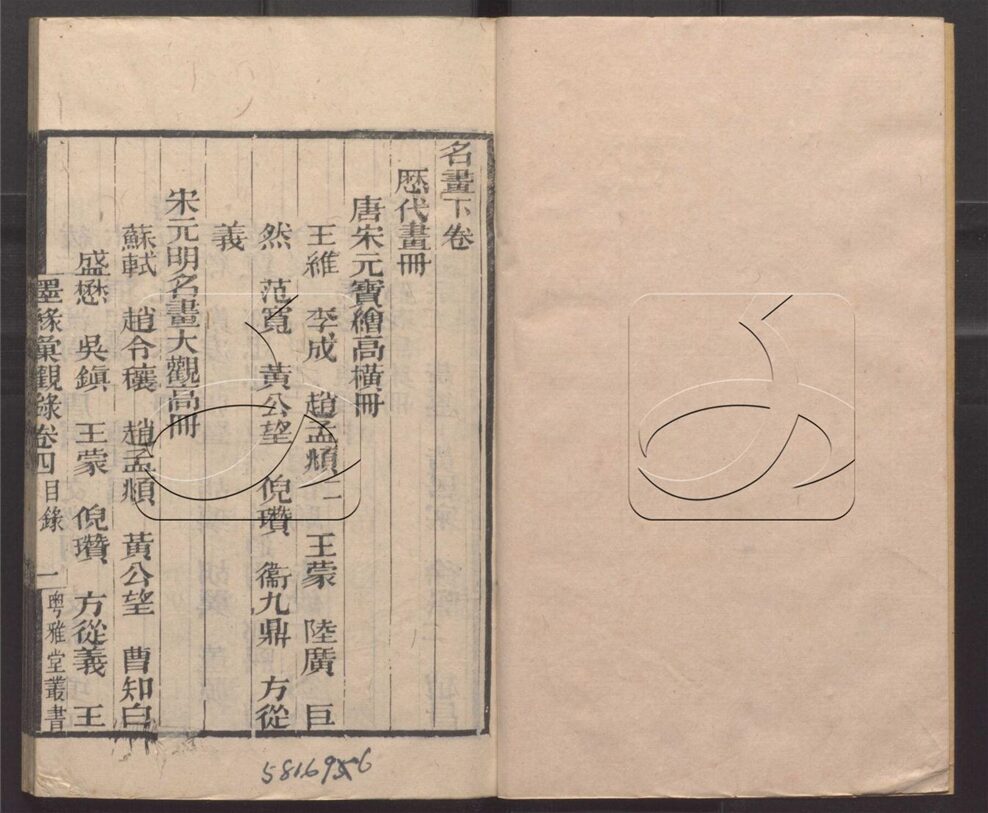 名畫下卷
歷代畫冊
唐宋元寶繪高橫冊
王維 李成 趙孟頫二 王蒙 陸廣 巨
然 范寬 黃公望 倪瓚 衞九鼎 方從
義
宋元明名畫大觀高冊
蘇軾 趙令穰 趙孟頫 黃公望 曹知白
盛懋 吳鎮 王蒙 倪瓚 方從義 王
墨緣彙觀錄卷四 目錄 一 粵雅堂叢書
5816956